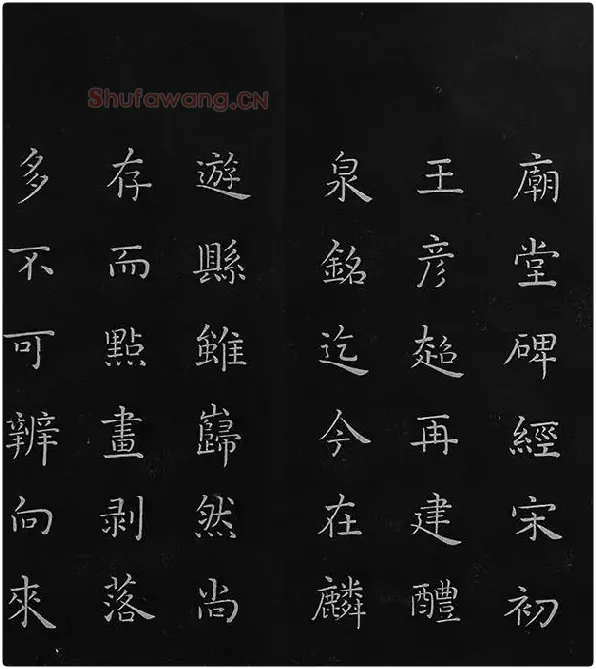 Shufawang.CN
廟堂碑經宋初
王彦超再建醴
泉銘迄今在麟
遊縣雖巋然尚
存而點畫剥落
多不可辨向來